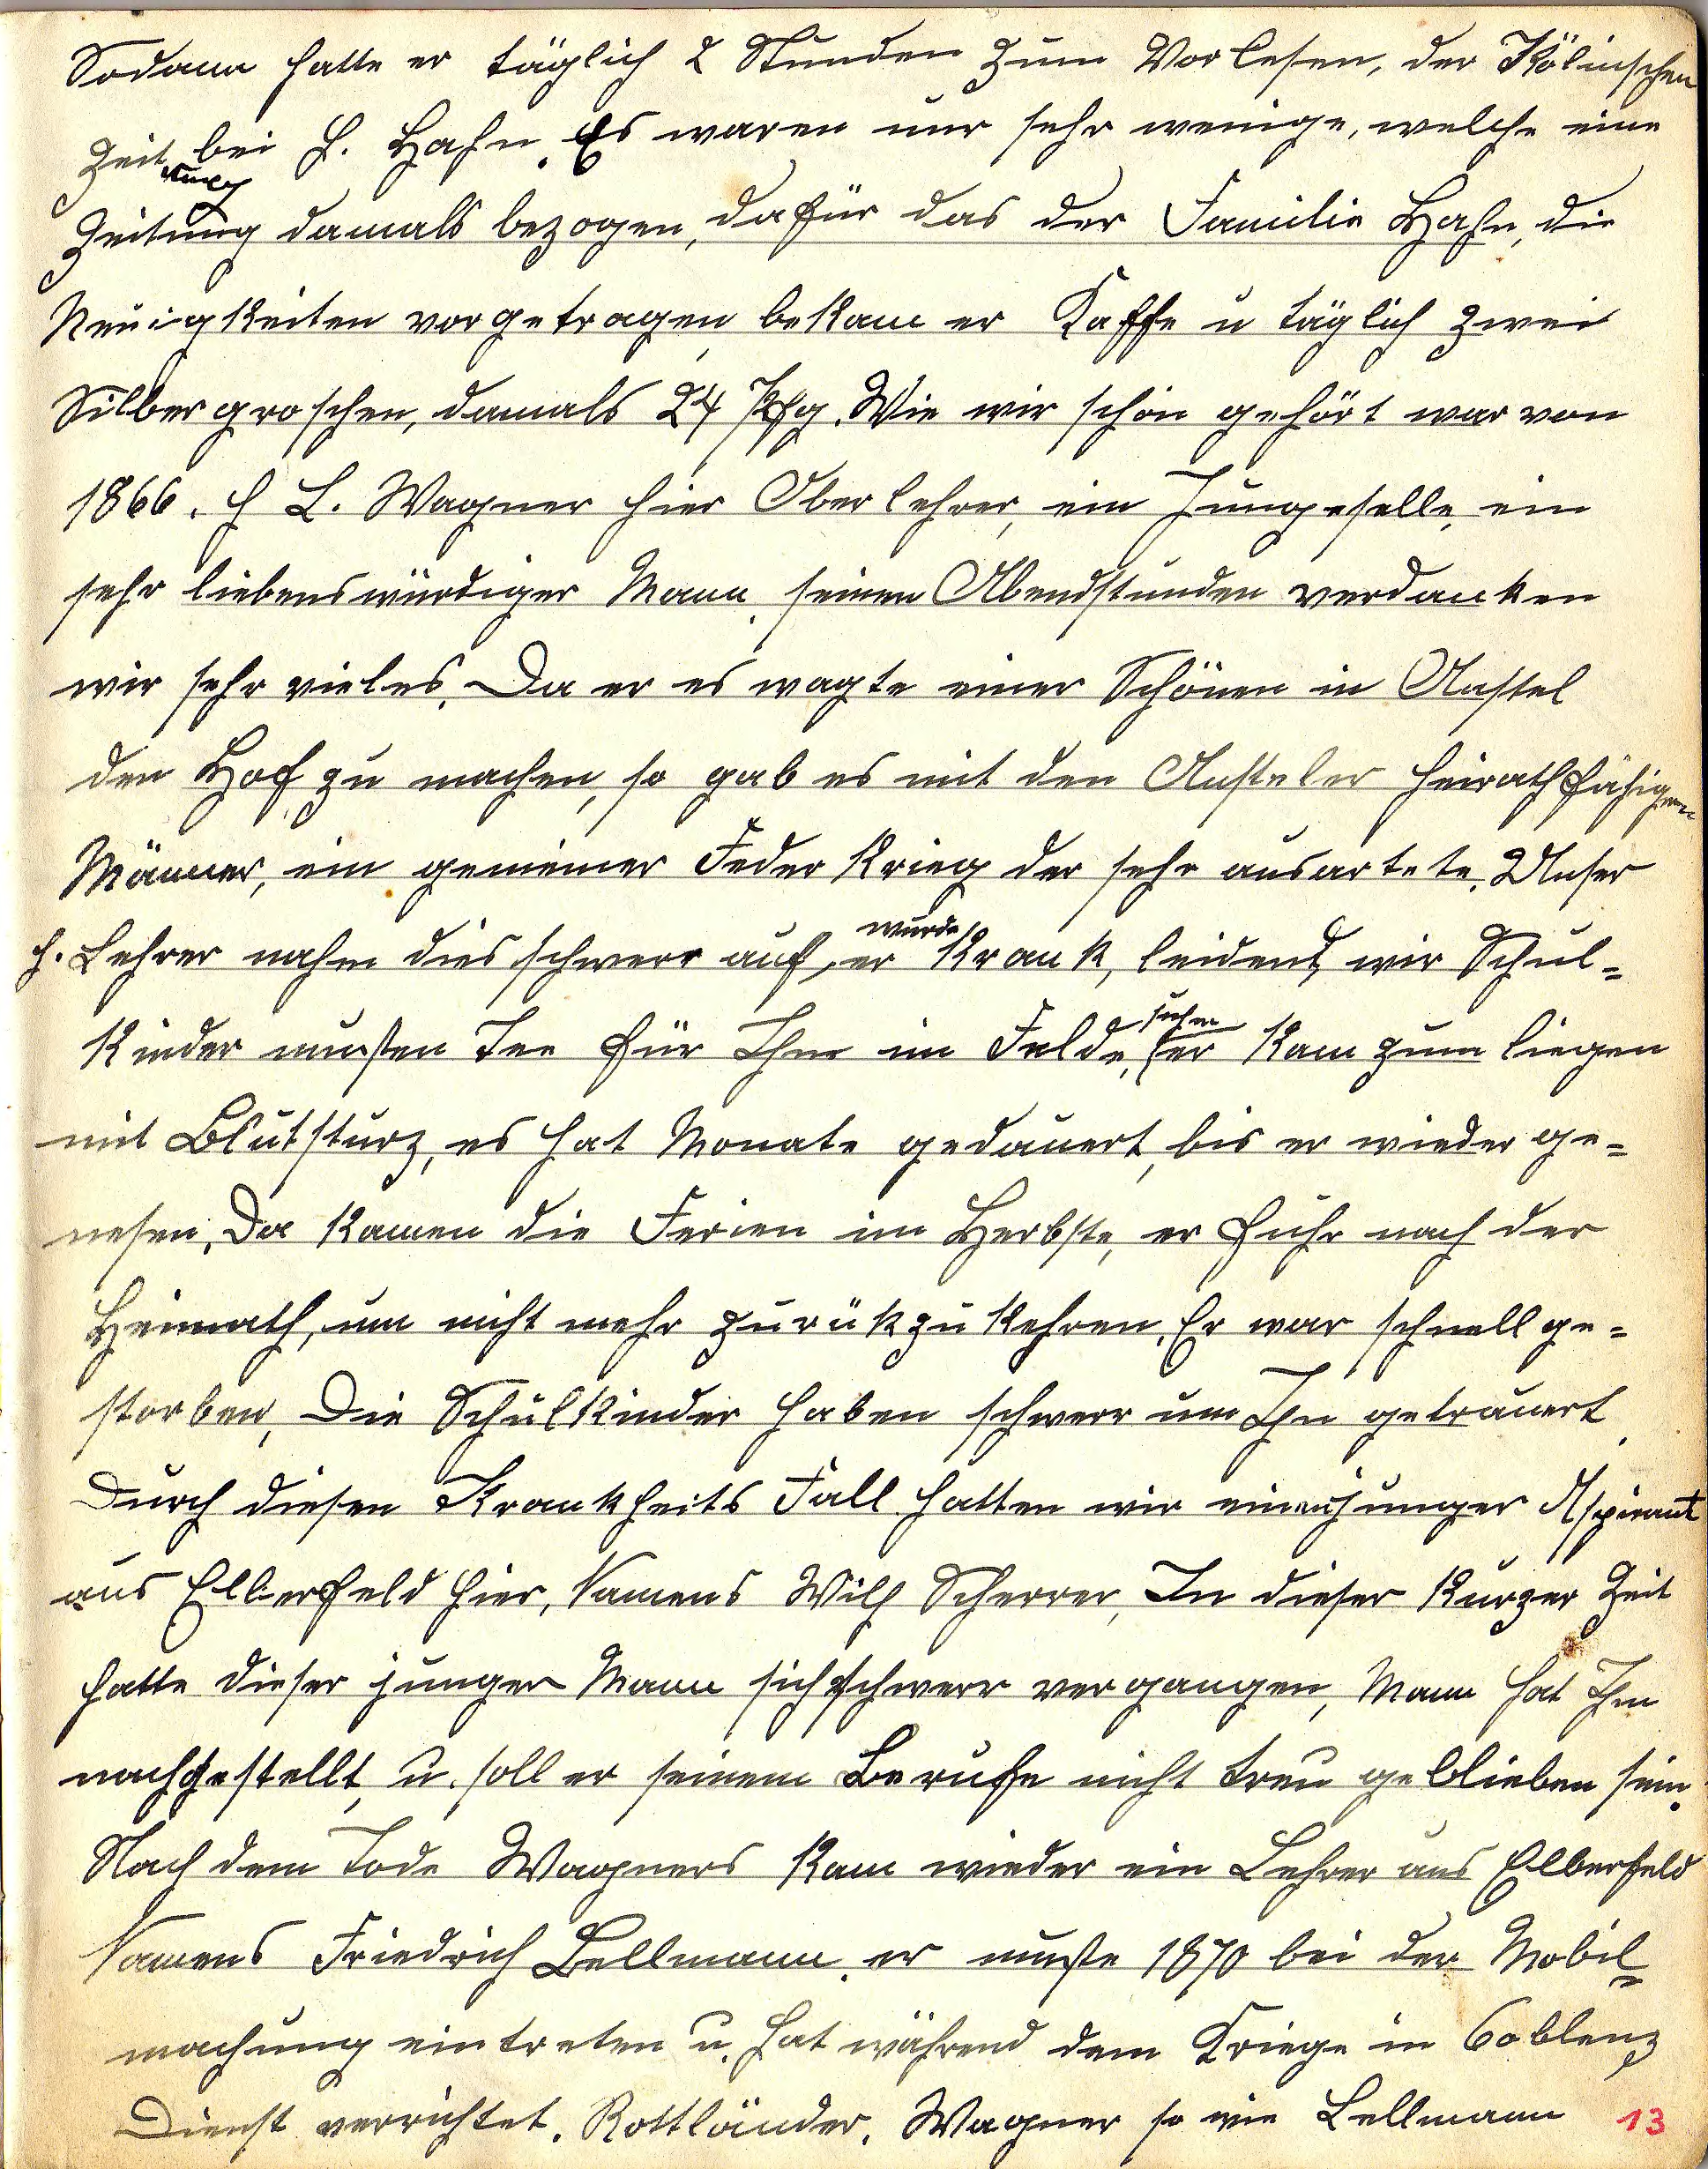 Sodann hatte er täglich 2 Stunden zum Vorlesen, der Kölnischen
Zeitung bei H. Hahn. Es waren nur sehr wenige, welche eine
Zeitung damals bezogen, dafür das der Familie Hahn, die
Neuigkeiten vorgetragen, bekam er Kaffe u täglich zwei
Silbergroschen, damals 24 Pfg. Wie wir schon gehört war von
1866. H L. Wagner hier Oberlehrer, ein Junggeselle, ein
sehr liebenswürdiger Mann, seinen Abendstunden verdanken
wir sehr vieles. Da er es wagte einer Schönen in Anstel
den Hof zu machen, so gab es mit den Ansteler heirathfähigen
Männer, ein gemeiner Federkrieg der sehr ausartete. Unser
H. Lehrer nahm dies schwerr auf, er wurde krank, leidend, wir Schul-
kinder mussten Tee für Ihm im Felde, suchen er kam zum liegen
mit Blutsturz, es hat Monate gedauert, bis er wieder ge-
nesen. Da kamen die Ferien im Herbste, er fuhr nach der
Heimath, um nicht mehr zurükzukehren. Er war schnell ge-
storben, Die Schulkinder haben schwerr um Ihn getrauert.
Durch diesen Krankheits Fall hatten wir einen junger Aspirant
aus Ellierfeld hier, Namens Wilh Scherrer, In dieser kurzer Zeit
hatte dieser junger Mann sich schwerr vergangen, Mann hat Ihm
nachgestellt, u. soll er seinem Berufe nicht treu geblieben sein.
Nach dem Tode Wagners kam wieder ein Lehrer aus Elberfeld
Namens Friedrich Bellmann. er musste 1870 bei der Mobil-
machung eintreten u. hat während dem Kriege in Coblenz
Dienst verrichtet. Rottländer, Wagner so wie Lellmann 13